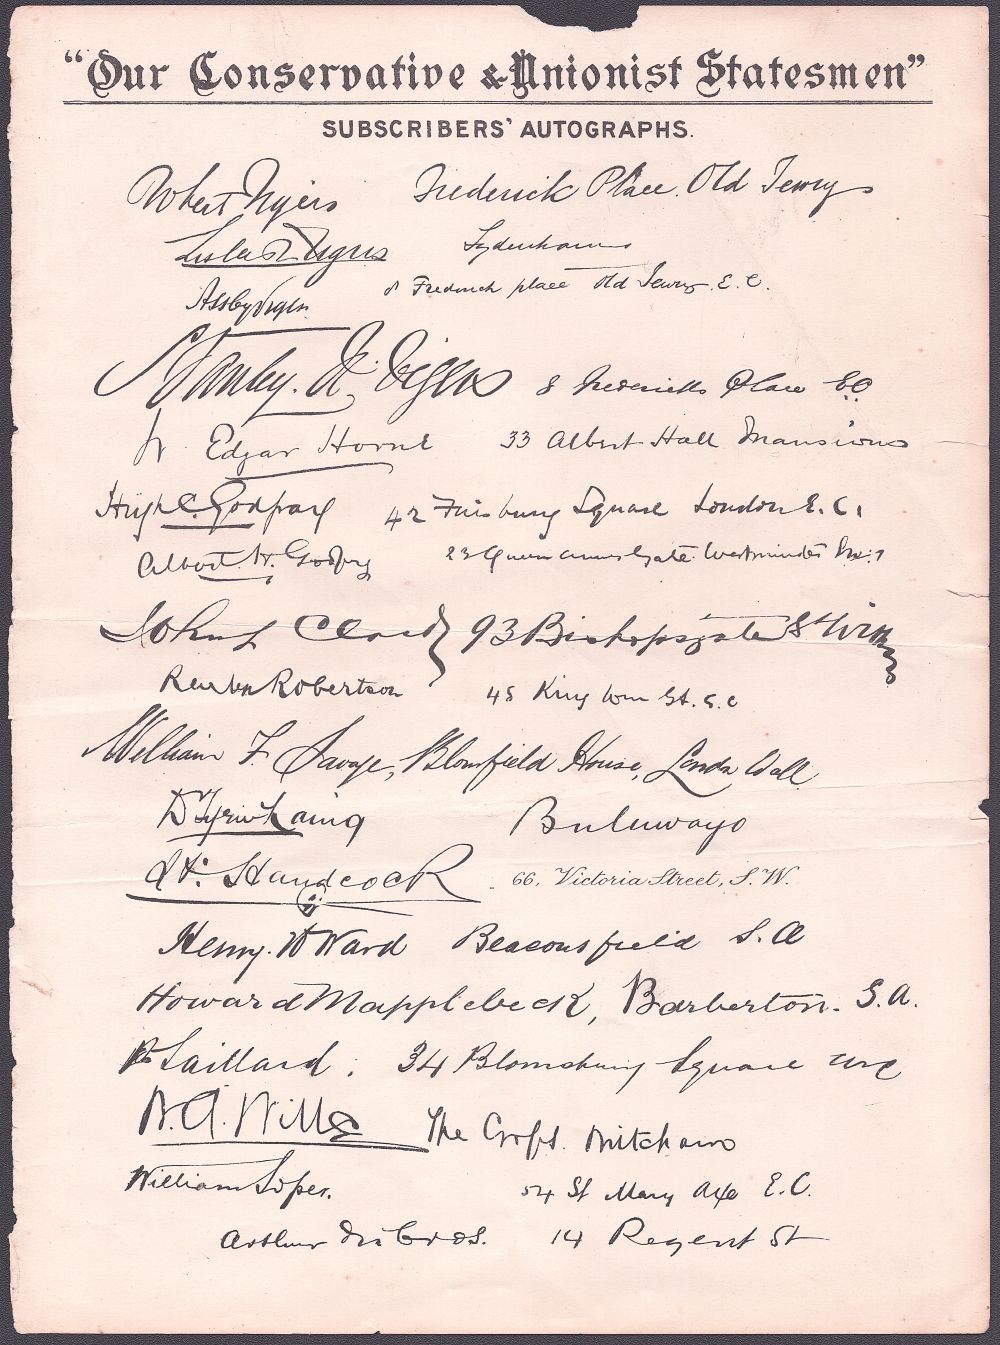 "Our Conservative & Unionist Statesmen"
SUBSCRIBERS' AUTOGRAPHS.
Frederick Place. Old Jewry
Sydenham
8 Frederick place Old Jewry. E. C.
Stanley. 8 Fredericks Place EC
W Edgar Horne 33 Albert Hall Mansions
Hugh C. Godfray 42 Finsbury Square London E. C.
Albert H. Godfray 23 Queen Annes Gate Westminster
John 93 Bishopsgate St
Reuben Robertson 45 King Wm St. E. C
William F Savage, Blomfield House, London Wall
D Tyrie Laing Buluwayo
Handcock 66, Victoria Street, S.W.
Henry. Ward Beaconsfield S. A
Howard Mapplebeck, Barberton. S. A.
Saillard. 34 Bloomsbury Square WC
W. A. Wills The Crofts. Mitcham
William Lopes. 54 St Mary Axe E. C.
Arthur du Cros. 14 Regent St